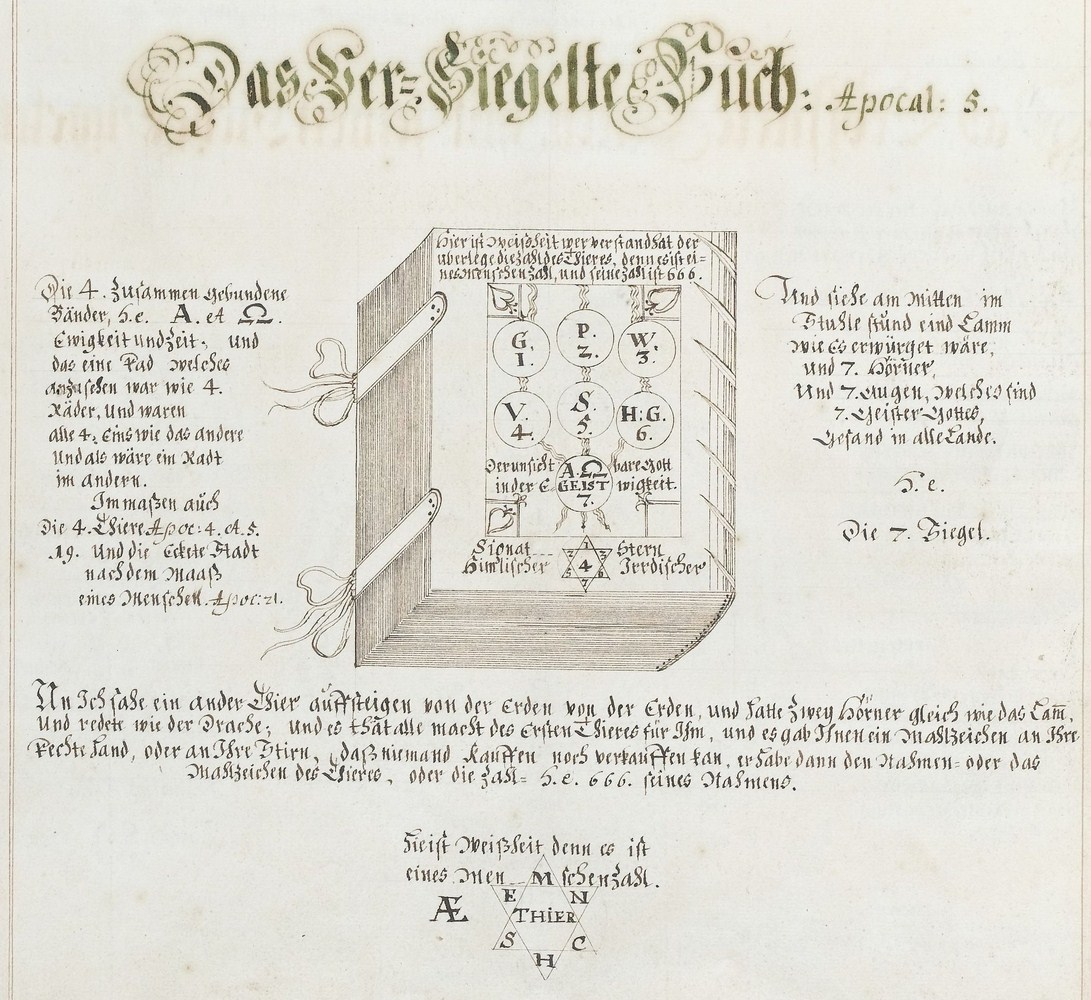 Das Ver-Siegelte Buch: Apocal: 5.
Hier ist Weisheit wer verstand hat der
überlege die zahl des Thieres, denn es ist ei-
nes menschen zahl, und seine zahl ist 666.
Die 4. Zusammen gebundene
Bänder, h.e. A. et Ω.
Ewigkeit und Zeit, und
das eine Rad welches
anzusehen war wie 4.
Räder, Und waren
alle 4. Eins wie das andere
Und als wäre ein Radt
im andern.
Immaßen auch
Die 4. Thiere Apoc: 4. et. 5.
19. Und die Eckete Stadt
nach dem Maaß
eines Menschen. Apoc: 21.
G. 1.
P. 2.
W. 3.
V. 4.
S. 5.
H:G. 6.
Der unsicht A.Ω bare Gott
in der E GEIST wigkeit.
7.
Signat Stern
Himlischer Irrdischer
1
2 3
4
5 6
7
Und siehe am Mitten im
Stuhle stund eind Lamm
wie Es erwürget wäre,
und 7. Hörner,
Und 7. Augen, welches sind
7. Geister Gottes,
Gesand in alle Lande.
h.e.
Die 7. Siegel.
Un Ich sahe ein ander Thier auffsteigen von der Erden von der Erden, und hatte zwey Hörner gleich wie das Lam̄,
Und redete wie der Drache; und es thät alle macht des Ersten Thieres für Ihm, und es gab Ihnen ein Mahlzeichen an Ihre
Rechte hand, oder an Ihre Stirn, daß niemand Kauffen noch verkauffen kan, er habe dann den Nahmen= oder das
Mahlzeichen des Thieres, oder die Zahl= h.e. 666. seines Nahmens.
Hie ist Weißheit denn es ist
eines Men M schen Zahl.
E N
Æ THIER
S C
H